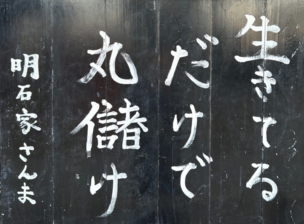 生きてる
だけで
丸儲け
明石家さんま